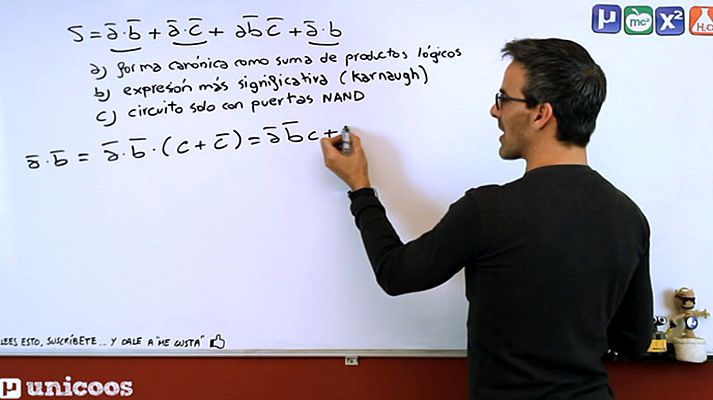 S = a̅·b̅ + a̅·c̅ + ab̅c̅ + a̅·b
a) forma canónica como suma de productos lógicos
b) expresión más significativa (Karnaugh)
c) circuito solo con puertas NAND
a̅·b̅ = a̅·b̅·(c + c̅) = a̅b̅c +
LEES ESTO, SUSCRÍBETE... Y DALE A "ME GUSTA"
μ unicoos
μ mc² x² H₂O